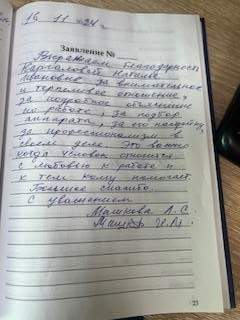 16 11 24 г
Заявление №
Выражаем благодарность
Наталье
Ивановне за внимательное
и терпеливое отношение,
за подробное объяснение
по работе, за подбор
аппарата, за его настройку,
за профессионализм в
своем деле. Это важно
когда человек относится
с любовью к работе и
к тем кому помогает.
Большое спасибо.
С уважением
Машкова А. С.
23